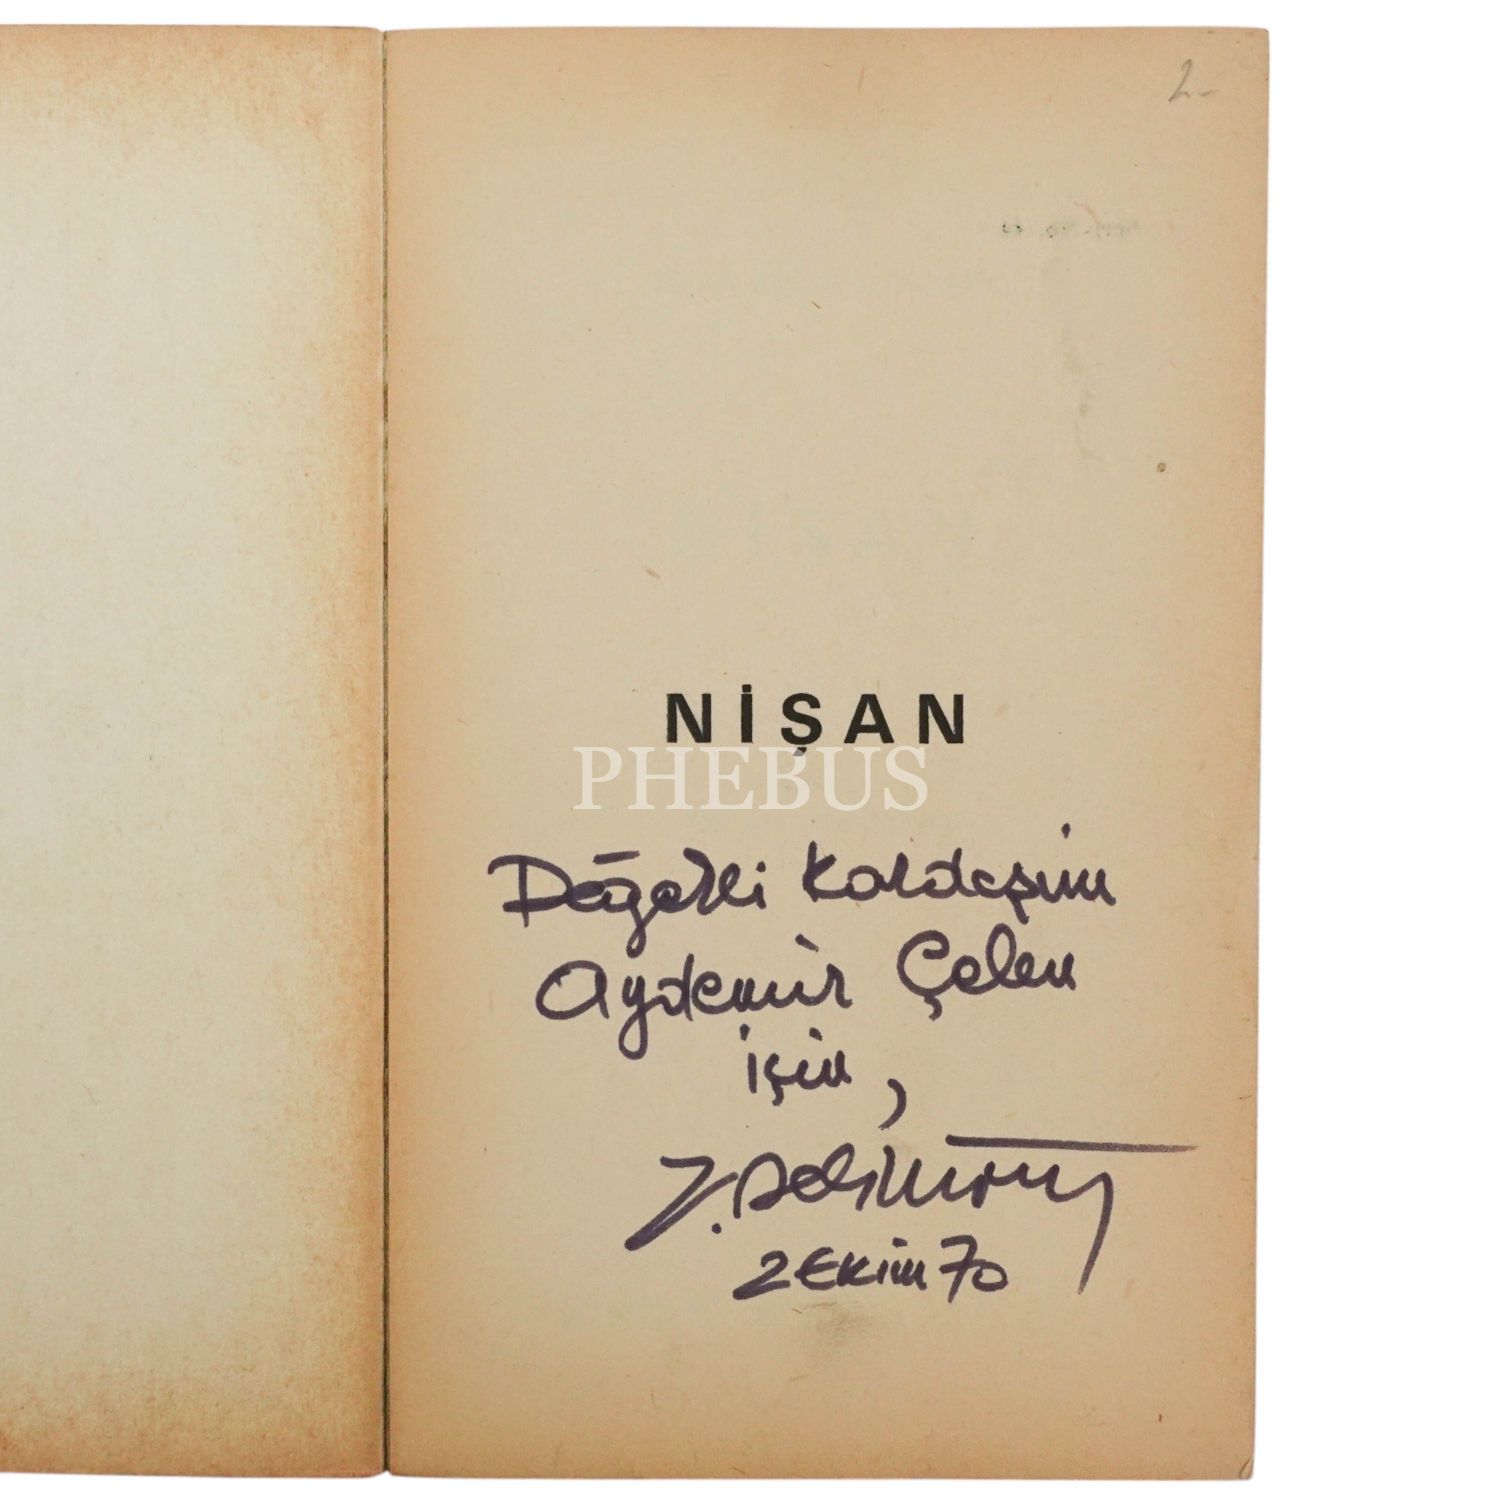 2-
NİŞAN
PHEBUS
Değerli Kardeşim
Aydemir Çelen
için,
2 Ekim 70